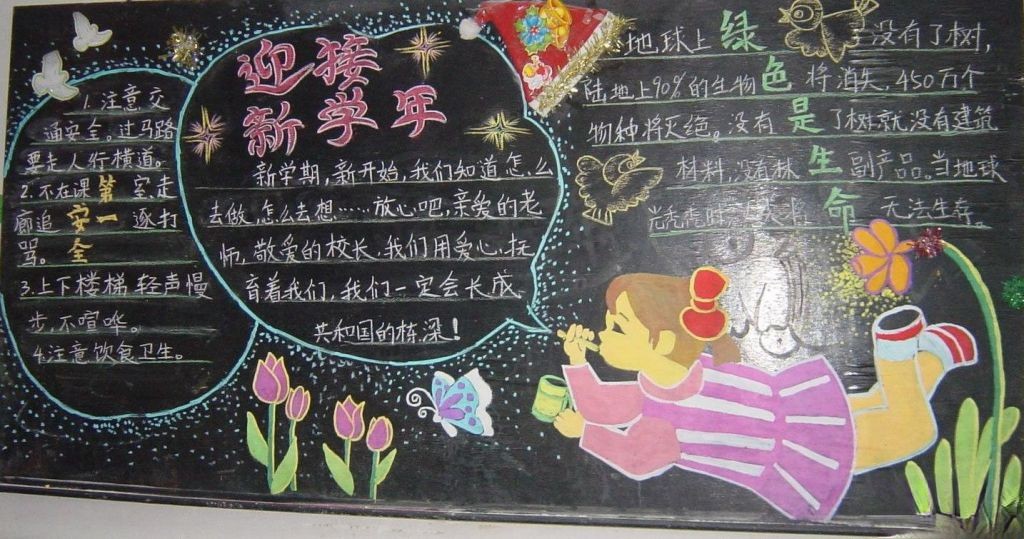 1.注意交
通安全。过马路
要走人行横道。
2.不在课室走
廊追逐打
骂。
安全第一
3.上下楼梯,轻声慢
步,不喧哗。
4.注意饮食卫生。
迎接
新学年
新学期,新开始,我们知道怎么
去做,怎么去想……放心吧,亲爱的老
师,敬爱的校长,我们用爱心,抚
育着我们,我们一定会长成
共和国的栋深!
绿色是生命
地球上 没有了树,
陆地上90%的生物将消失,450万个
物种将灭绝。没有了树就没有建筑
材料,没有林副产品。当地球
光秃秃时 无法生存。